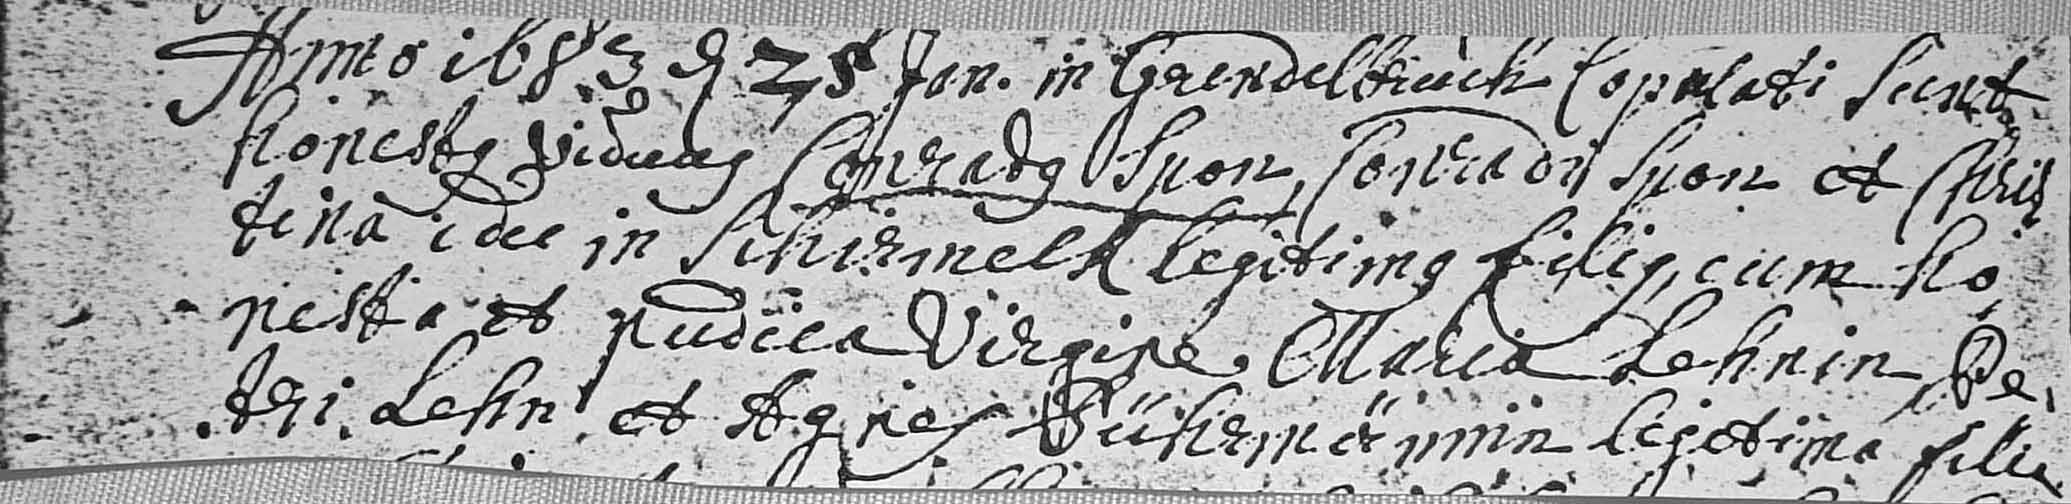 Anno 1683 d 25 Jan. in Grendelbruch Copulati Sunt
honesty viduus Conrady Spon, Conradi Spon et Chris
tina idee in Schirmeck legitimy filiy, cum ho,
nesta et pudica Virgine Maria Lehnin, Pe,
tri Lehn et Agnes legitima filia